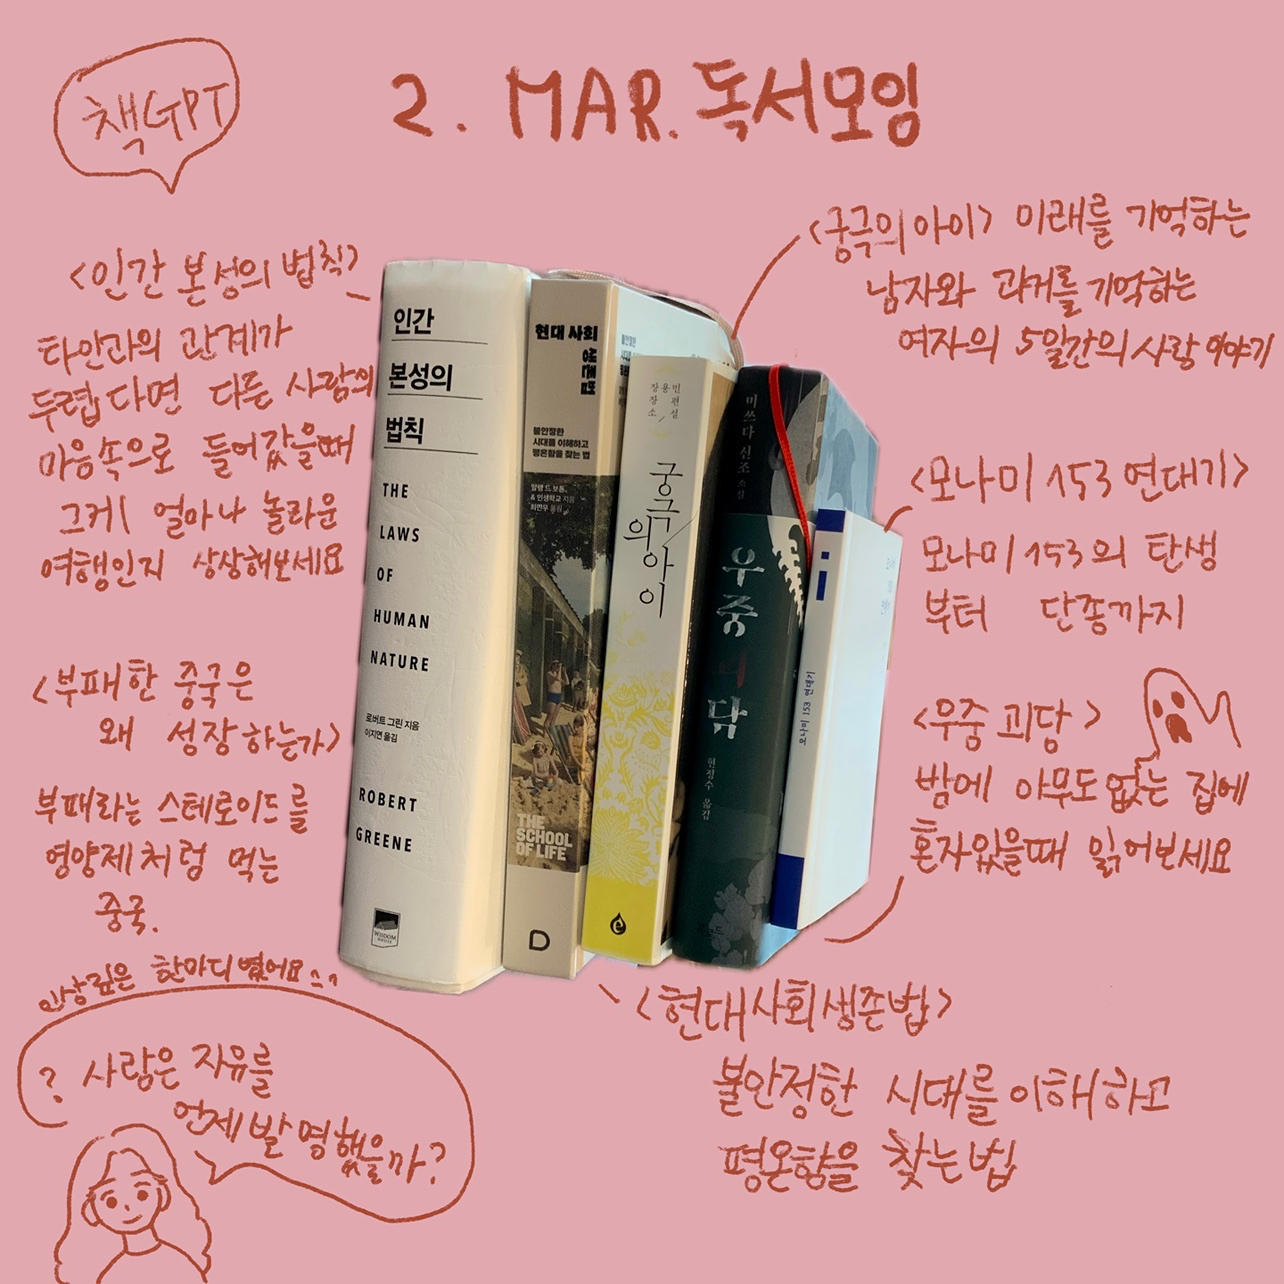 책GPT
2. MAR. 독서모임
<인간 본성의 법칙>
타인과의 관계가
두렵다면 다른 사람의
마음속으로 들어갔을때
그게 얼마나 놀라운
여행인지 상상해보세요
<부패한 중국은
왜 성장하는가>
부패라는 스테로이드를
영양제처럼 먹는
중국.
인상깊은 한마디였어요
? 사람은 자유를
언제 발명했을까?
<궁극의 아이> 미래를 기억하는
남자와 과거를 기억하는
여자의 5일간의 사랑 이야기
<모나미 153 연대기>
모나미 153의 탄생
부터 단종까지
<우중괴담>
밤에 아무도 없는 집에
혼자있을때 읽어보세요
<현대사회생존법>
불안정한 시대를 이해하고
평온함을 찾는법
인간
본성의
법칙
THE
LAWS
OF
HUMAN
NATURE
로버트 그린 지음
이지연 옮김
ROBERT
GREENE
WISDOM
HOUSE
현대 사회
생존법
불안정한
시대를 이해하고
평온함을 찾는 법
알랭 드 보통
& 인생학교 지음
최민우 옮김
THE
SCHOOL
OF LIFE
D
장용민
장편소설
궁극의 아이
e
미쓰다 신조 소설
우중괴담
현정수 옮김
i
모나미 153 연대기